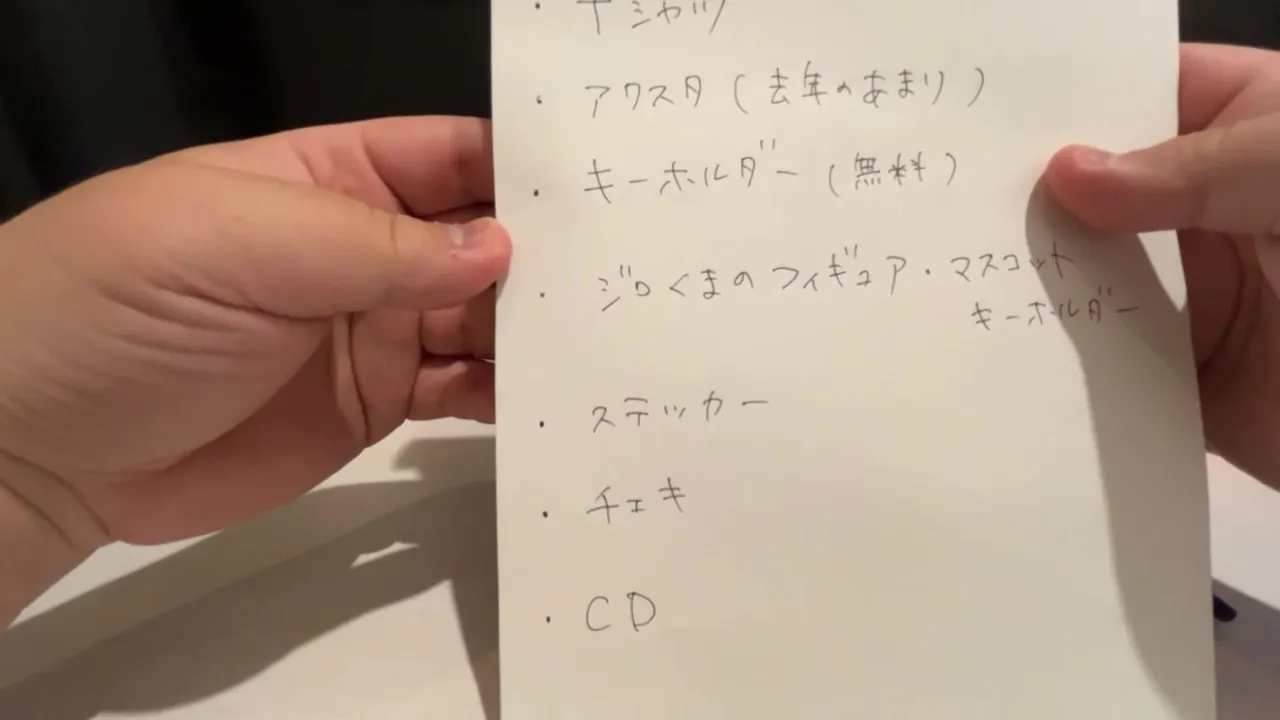 ・Tシャツ
・アクスタ(去年のあまり)
・キーホルダー(無料)
・ジロくまのフィギュア・マスコット
キーホルダー
・ステッカー
・チェキ
・CD